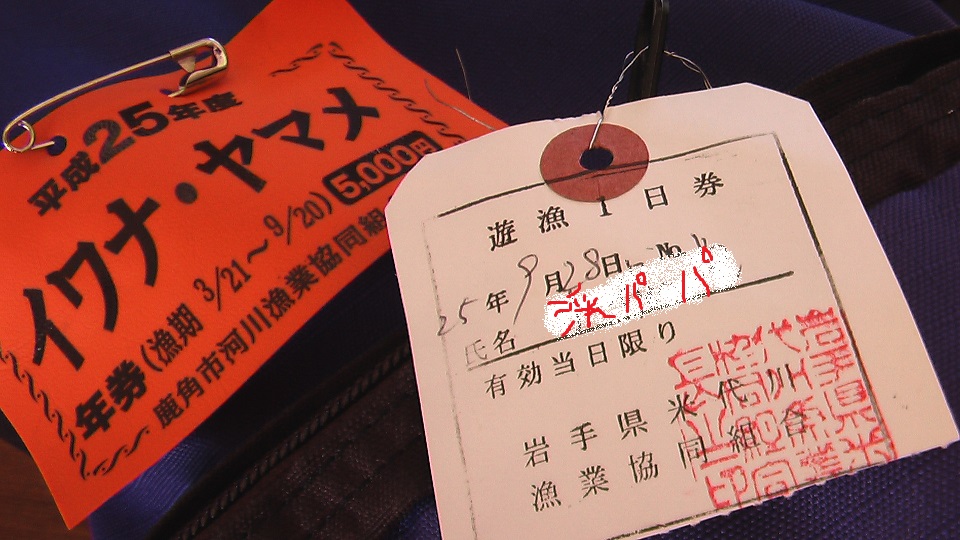 平成25年度
イワナ・ヤマメ
年券(漁期 3/21～9/20) 5,000円
鹿角市河川漁業協同組
遊漁1日券
25年9月28日 No.
氏名 渓パパ
有効当日限り
岩手県米代川
漁業協同組合